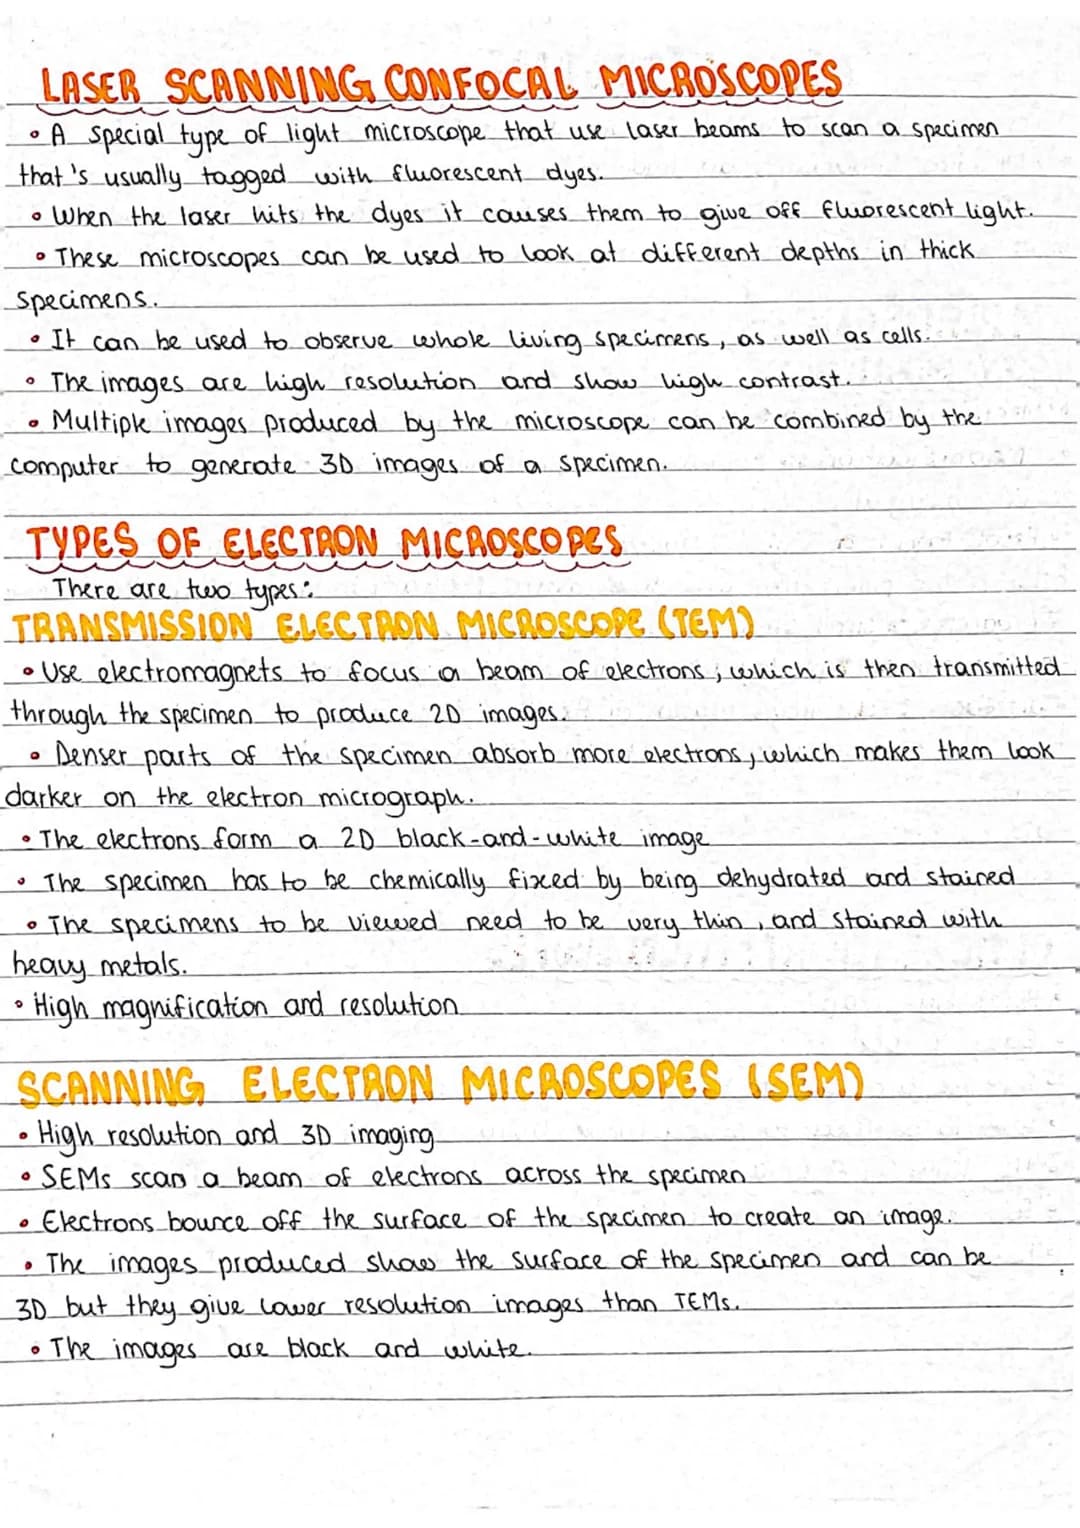 LASER SCANNING CONFOCAL MICROSCOPES
• A special type of light microscope that use laser beams to scan a specimen
that's usually tagged with fluorescent dyes.
• When the laser hits the dyes it causes them to give off fluorescent light.
• These microscopes can be used to look at different depths in thick
specimens.
• It can be used to observe whole living specimens, as well as cells.
• The images are high resolution and show high contrast.
• Multiple images produced by the microscope can be combined by the
computer to generate 3D images of a specimen.
TYPES OF ELECTRON MICROSCOPES
There are two types:
TRANSMISSION ELECTRON MICROSCOPE (TEM)
• Use electromagnets to focus a beam of electrons; which is then transmitted
through the specimen to produce 2D images.
• Denser parts of the specimen absorb more electrons, which makes them look
darker on the electron micrograph.
• The electrons form a 2D black-and-white image
• The specimen has to be chemically fixed by being dehydrated and stained
• The specimens to be viewed need to be very thin, and stained with
heavy metals.
• High magnification and resolution
SCANNING ELECTRON MICROSCOPES (SEM)
• High resolution and 3D imaging
• SEMs scan a beam of electrons across the specimen
• Electrons bounce off the surface of the specimen to create an image.
• The images produced show the surface of the specimen and can be
3D but they give lower resolution images than TEMs.
• The images are black and white.